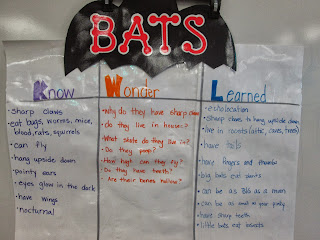 BATS
Know
• sharp claws
• eat bugs, worms, mice,
blood, rats, squirrels
• can fly
• hang upside down
• pointy ears
• eyes glow in the dark
• have wings
• nocturnal
Wonder
• Why do they have sharp claws?
• do they live in houses?
• What state do they live in?
• Do they poop?
• How high can they fly?
• Do they have teeth?
• Are their bones hollow?
Learned
• echolocation
• sharp claws to hang upside down
• live in roosts (attic, caves, trees)
• have tails
• have fingers and thumbs
• big bats eat
• can be as BIG as a
• can be as small as your
• have sharp teeth
• little bats eat insects